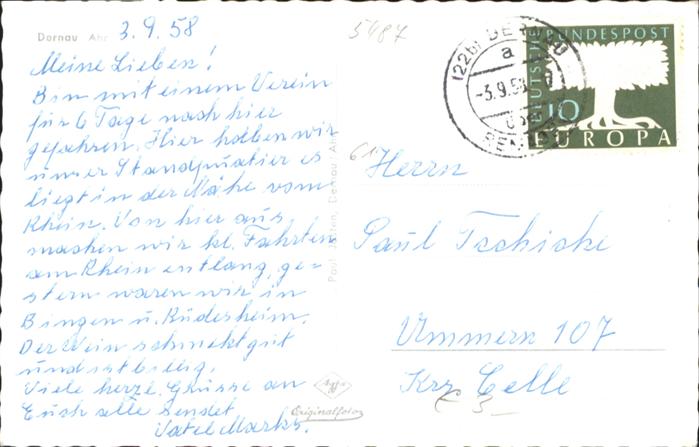 Dernau Ahr 3.9.58
Meine Lieben!
Bin mit einem Verein
für 6 Tage nach hier
gefahren. Hier haben wir
unser Standquatier es
liegt in der Nähe vom
Rhein. Von hier aus
machen wir kl. Fahrten
am Rhein entlang, ge-
stern waren wir in
Bingen u. Rüdesheim.
Der Wein schmekt gut
und ist billig.
Viele herzl. Grüsse an
Euch alle sendet
Vatel Marks.
Agfa
Originalfoto
Dernau / Ahr
5487
(22b) DERNAU
a
-3.9.58
DEUTSCHE BUNDESPOST
10
EUROPA
Herrn
Paul Tschicke
Ummern 107
Krz Celle